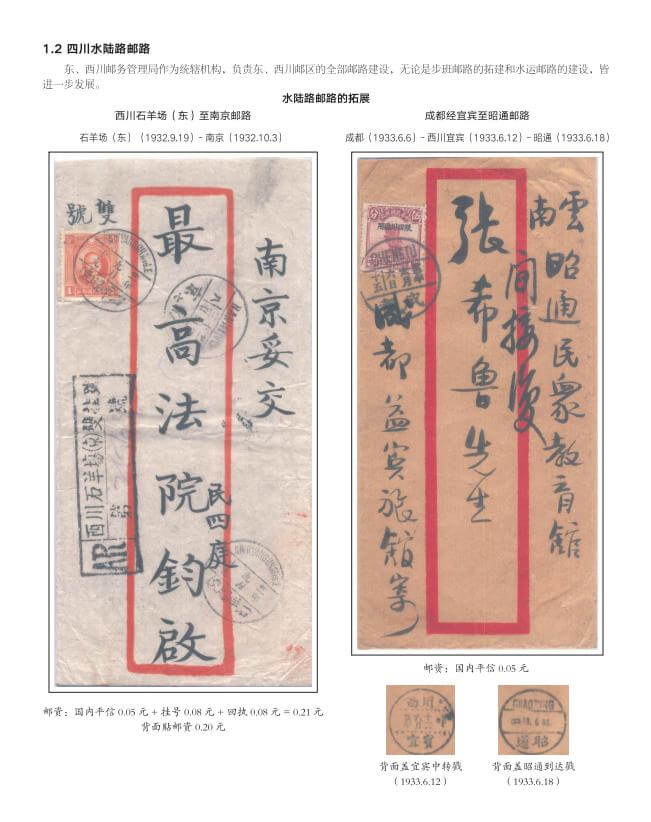 1.2 四川水陆路邮路
东、西川邮务管理局作为统辖机构，负责东、西川邮区的全部邮路建设，无论是步班邮路的拓建和水运邮路的建设，皆
进一步发展。
水陆路邮路的拓展
西川石羊场（东）至南京邮路
石羊场（东）（1932.9.19）- 南京（1932.10.3）
雙號
南京妥交
最高法院鈞啟
民四庭
西川石羊場(東)雙挂號
第 號
AR
1
邮资：国内平信 0.05 元 + 挂号 0.08 元 + 回执 0.08 元 = 0.21 元
背面贴邮资 0.20 元
成都经宜宾至昭通邮路
成都（1933.6.6）- 西川宜宾（1933.6.12）- 昭通（1933.6.18）
雲南昭通民眾教育館
張希魯先生
成都益宾旅館寄
限四川貼用
CHENGTU
邮资：国内平信 0.05 元
西川
宜賓
背面盖宜宾中转戳
（1933.6.12）
CHAOTUNG
通昭
背面盖昭通到达戳
（1933.6.18）